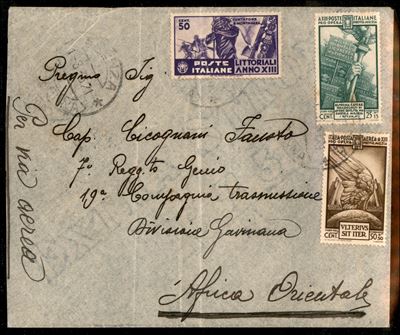 CENT. 50
POSTE ITALIANE
LITTORIALI ANNO XIII
POSTE ITALIANE
PRO OPERA
CENT.
25+15
POSTA AEREA
PRO OPERA
VLTERIVS SIT ITER
CENT.
50+50
Pregmo Sig.
Cap. Cicognani Fausto
7º Reggto Genio
19ª Compagnia trasmissione
Divisione Gavinana
Africa Orientale
Per via aerea